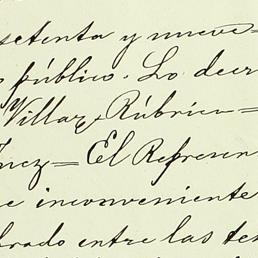 setenta y nueve=
público. Lo decr
Villar Rúbrica=
nez= El Represen
e inconveniente
brado entre las tes